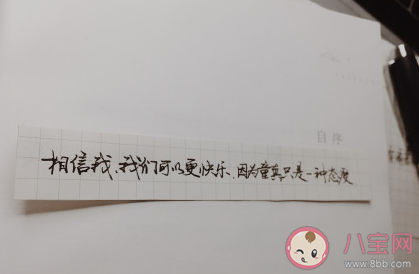 自序
相信我、我们可以更快乐、因为童真只是一种态度
八宝网
www.8bb.com